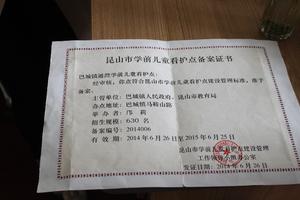 昆山市学前儿童看护点备案证书
巴城镇通澄学前儿童看护点:
经审核,你点符合昆山市学前儿童看护点建设管理标准,准予
备案。
主管单位:巴城镇人民政府、昆山市教育局
办点地址:巴城镇马鞍山路
举办者:邝莉
招生规模:630名
备案编号:2014006
有效期:2014年6月26日至2015年6月25日
昆山市学前儿童看护点建设管理
工作领导小组办公室
发证日期:2014年6月26日